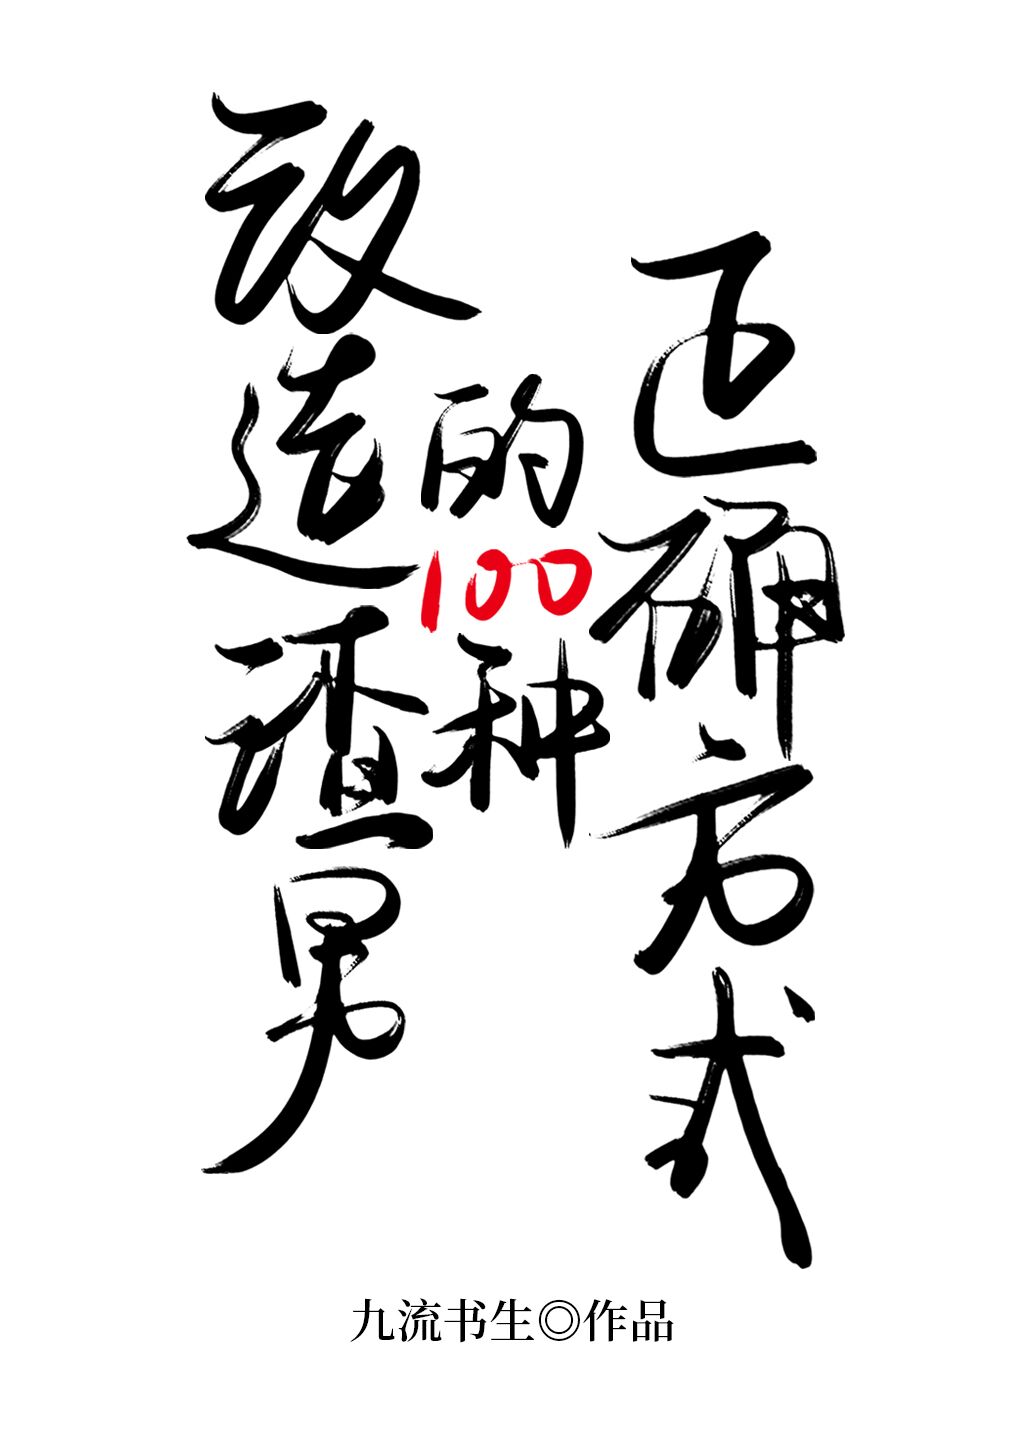 改造渣男
的100种
正确方式
九流书生◎作品